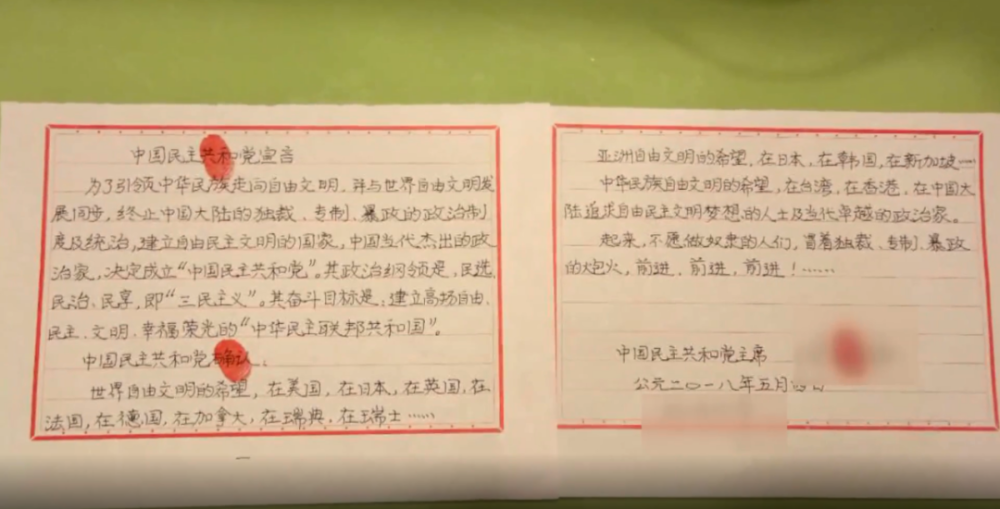 中国民主共和党宣言
为了引领中华民族走向自由文明，并与世界自由文明发
展同步，终止中国大陆的独裁、专制、暴政的政治制
度及统治，建立自由民主文明的国家，中国当代杰出的政
治家，决定成立“中国民主共和党”。其政治纲领是，民选、
民治、民享，即“三民主义”。其奋斗目标是：建立高扬自由、
民主、文明、幸福荣光的“中华民主联邦共和国”。
中国民主共和党确认：
世界自由文明的希望，在美国，在日本，在英国，在
法国，在德国，在加拿大，在瑞典，在瑞士……
一
亚洲自由文明的希望，在日本，在韩国，在新加坡……
中华民族自由文明的希望，在台湾，在香港，在中国大
陆追求自由民主文明梦想的人士及当代卓越的政治家。
起来，不愿做奴隶的人们，冒着独裁、专制、暴政
的炮火，前进，前进，前进！……
中国民主共和党主席
公元二〇一八年五月 日